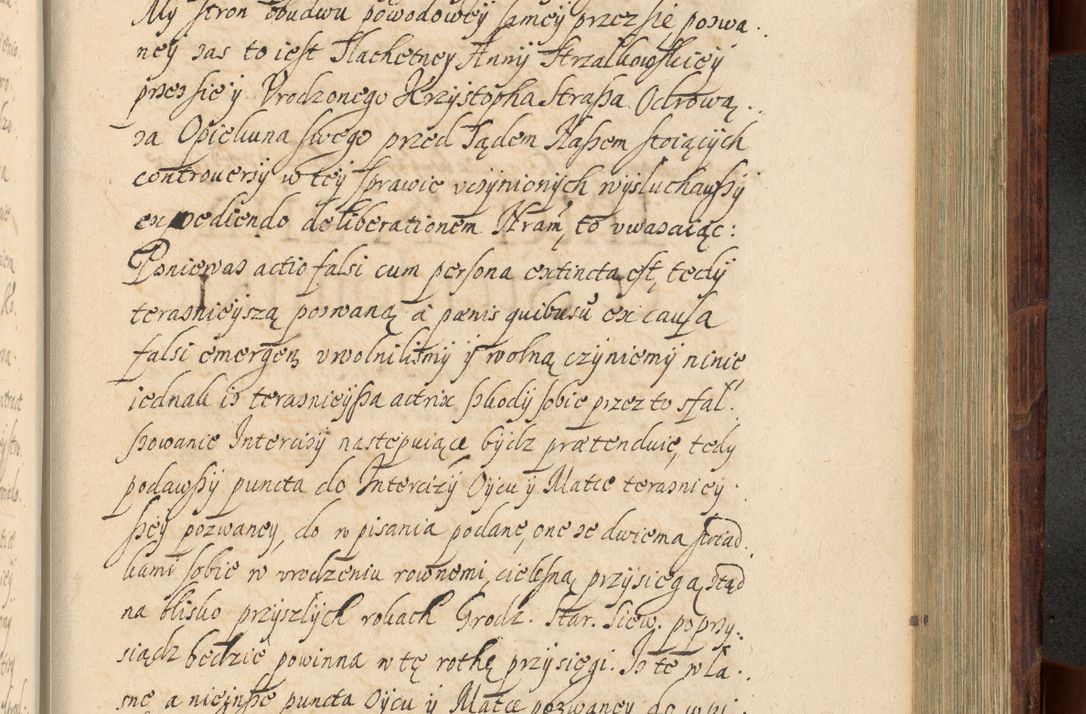 My stron obudwu powodowey samey przez się pozwa..
ney zas to iest Slachetney Anny Strzałkowskiey
przez się y Vrodzonego Krzysztopha Strassa Odrową..
za Opiekuna swego przed Sądem Naszem stoiących
controuersy w tey sprawie vczynionych wysłuchawszy
expediendo deliberationem Nram, to vwazaiąc:
Poniewaz actio falsi cum persona extincta est, tedy
terazniejszą pozwaną à pænis quibusu ex causa
falsi emergen vwolnilismy y wolną czyniemy ninie
iednak iz terazniejsza actrix szkody sobie przez to sfal.
szowanie Intercizy następuiące bydz prætenduie, tedy
podawszy puncta do Intercizy Oycu y Matce terazniey.
szey pozwaney, do wpisania podane, one ze dwiema swiad.
kami sobie w vrodzeniu rownemi, cielesną przysięgą ztąd
na blisko przyszłych rokach Grodz. Star. Siew. poprzy..
siądz będzie powinna w tę rothę przysięgi. Iz te wła..
sne a nieinsze puncta Oycu y Matce pozwaney do wpi